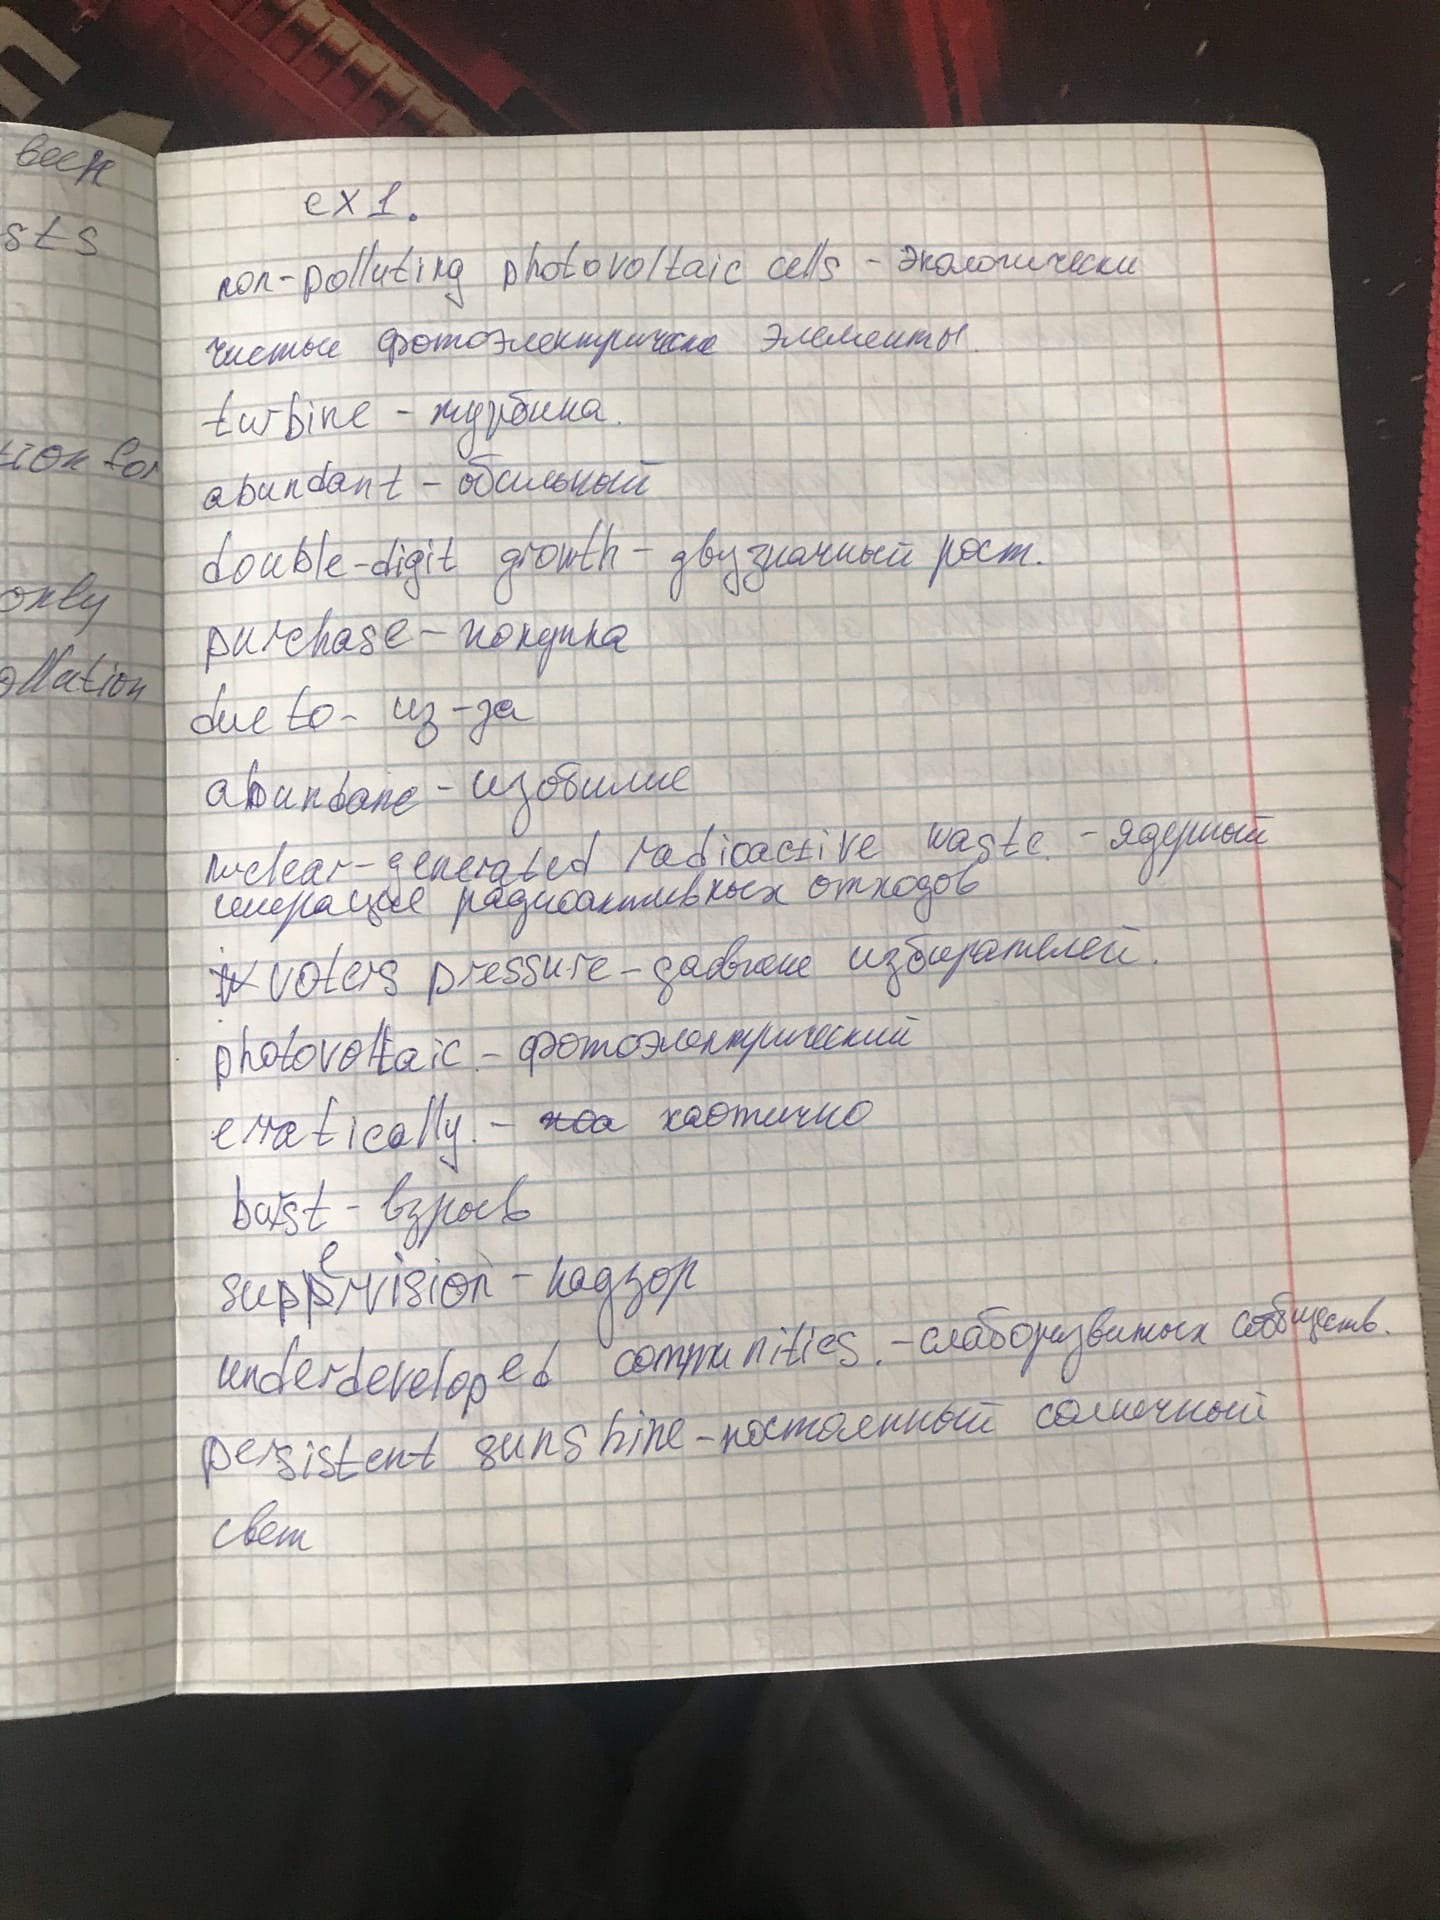 been
sts
tion for
only
ollation
ex 1.
non-polluting photovoltaic cells - экологически
чистые фотоэлектрические элементы.
turbine - турбина.
abundant - обильный
double-digit growth - двузначный рост.
purchase - покупка
due to - из-за
abundanc - изобилие
nuclear-generated radioactive waste. - ядерный
генерацие радиоактивных отходов
voters pressure - давление избирателей.
photovoltaic. - фотоэлектрический
erratically. - хаотично
burst - взрыв
suppervision - надзор
underdeveloped communities. - слаборазвитых сообществ.
persistent sunshine - постоянный солнечный
свет